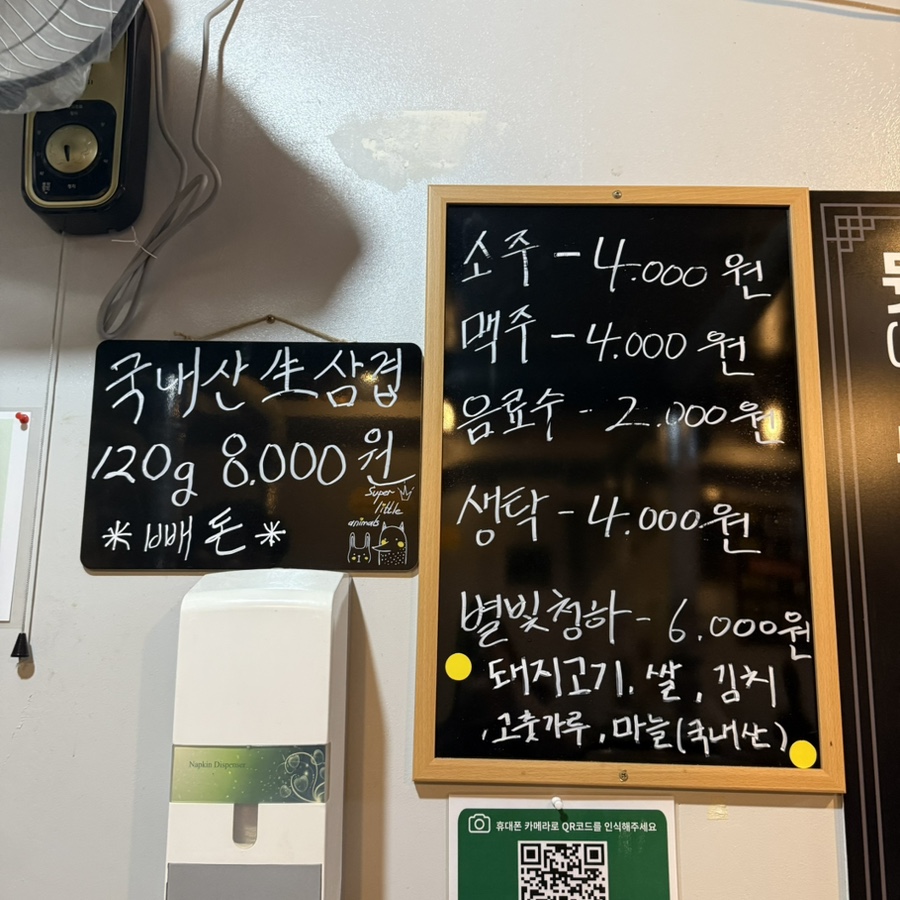 국내산 生 삼겹
120g 8.000 원
* 빼 돈 *
Super
little
animals
Napkin Dispenser
소주 - 4.000 원
맥주 - 4.000 원
음료수 - 2.000 원
생탁 - 4.000 원
별빛청하 - 6.000원
돼지고기, 쌀, 김치
, 고춧가루, 마늘(국내산)
휴대폰 카메라로 QR코드를 인식해주세요